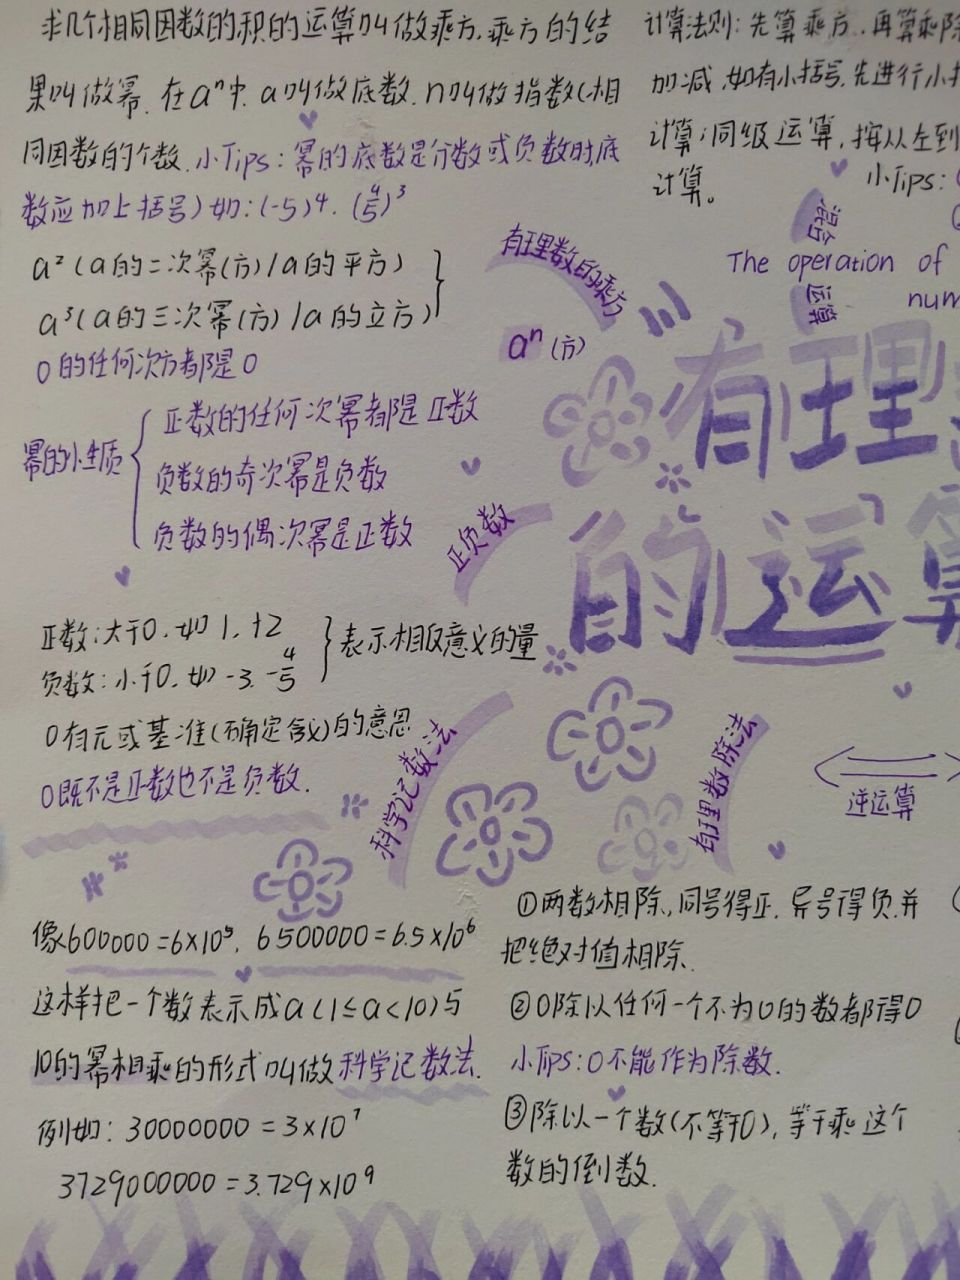 求几个相同因数的积的运算叫做乘方.乘方的结
果叫做幂.在aⁿ中.a叫做底数.n叫做指数(相
同因数的个数.小Tips:幂的底数是分数或负数时底
数应加上括号)如:(-5)⁴.(4/5)³
a²(a的二次幂(方)/a的平方)
a³(a的三次幂(方)/a的立方)
0的任何次方都是0
幂的性质
正数的任何次幂都是正数
负数的奇次幂是负数
负数的偶次幂是正数
计算法则:先算乘方.再算乘除
加减.如有小括号.先进行小括
计算;同级运算,按从左到
计算。
小Tips:
混合
运算
The operation of
num
有理数的乘方
aⁿ(方)
有理
的运算
正负数
正数:大于0.如1.+2
负数:小于0.如-3.-4/5
表示相反意义的量
0有无或基准(确定含义)的意思
0既不是正数也不是负数.
科学记数法
有理数除法
逆运算
像600000=6×10⁵.6500000=6.5×10⁶
这样把一个数表示成a(1≤a<10)与
10的幂相乘的形式叫做科学记数法.
例如:30000000=3×10⁷
3729000000=3.729×10⁹
①两数相除,同号得正.异号得负.并
把绝对值相除.
②0除以任何一个不为0的数都得0
小Tips:0不能作为除数.
③除以一个数(不等于0),等于乘这个
数的倒数.